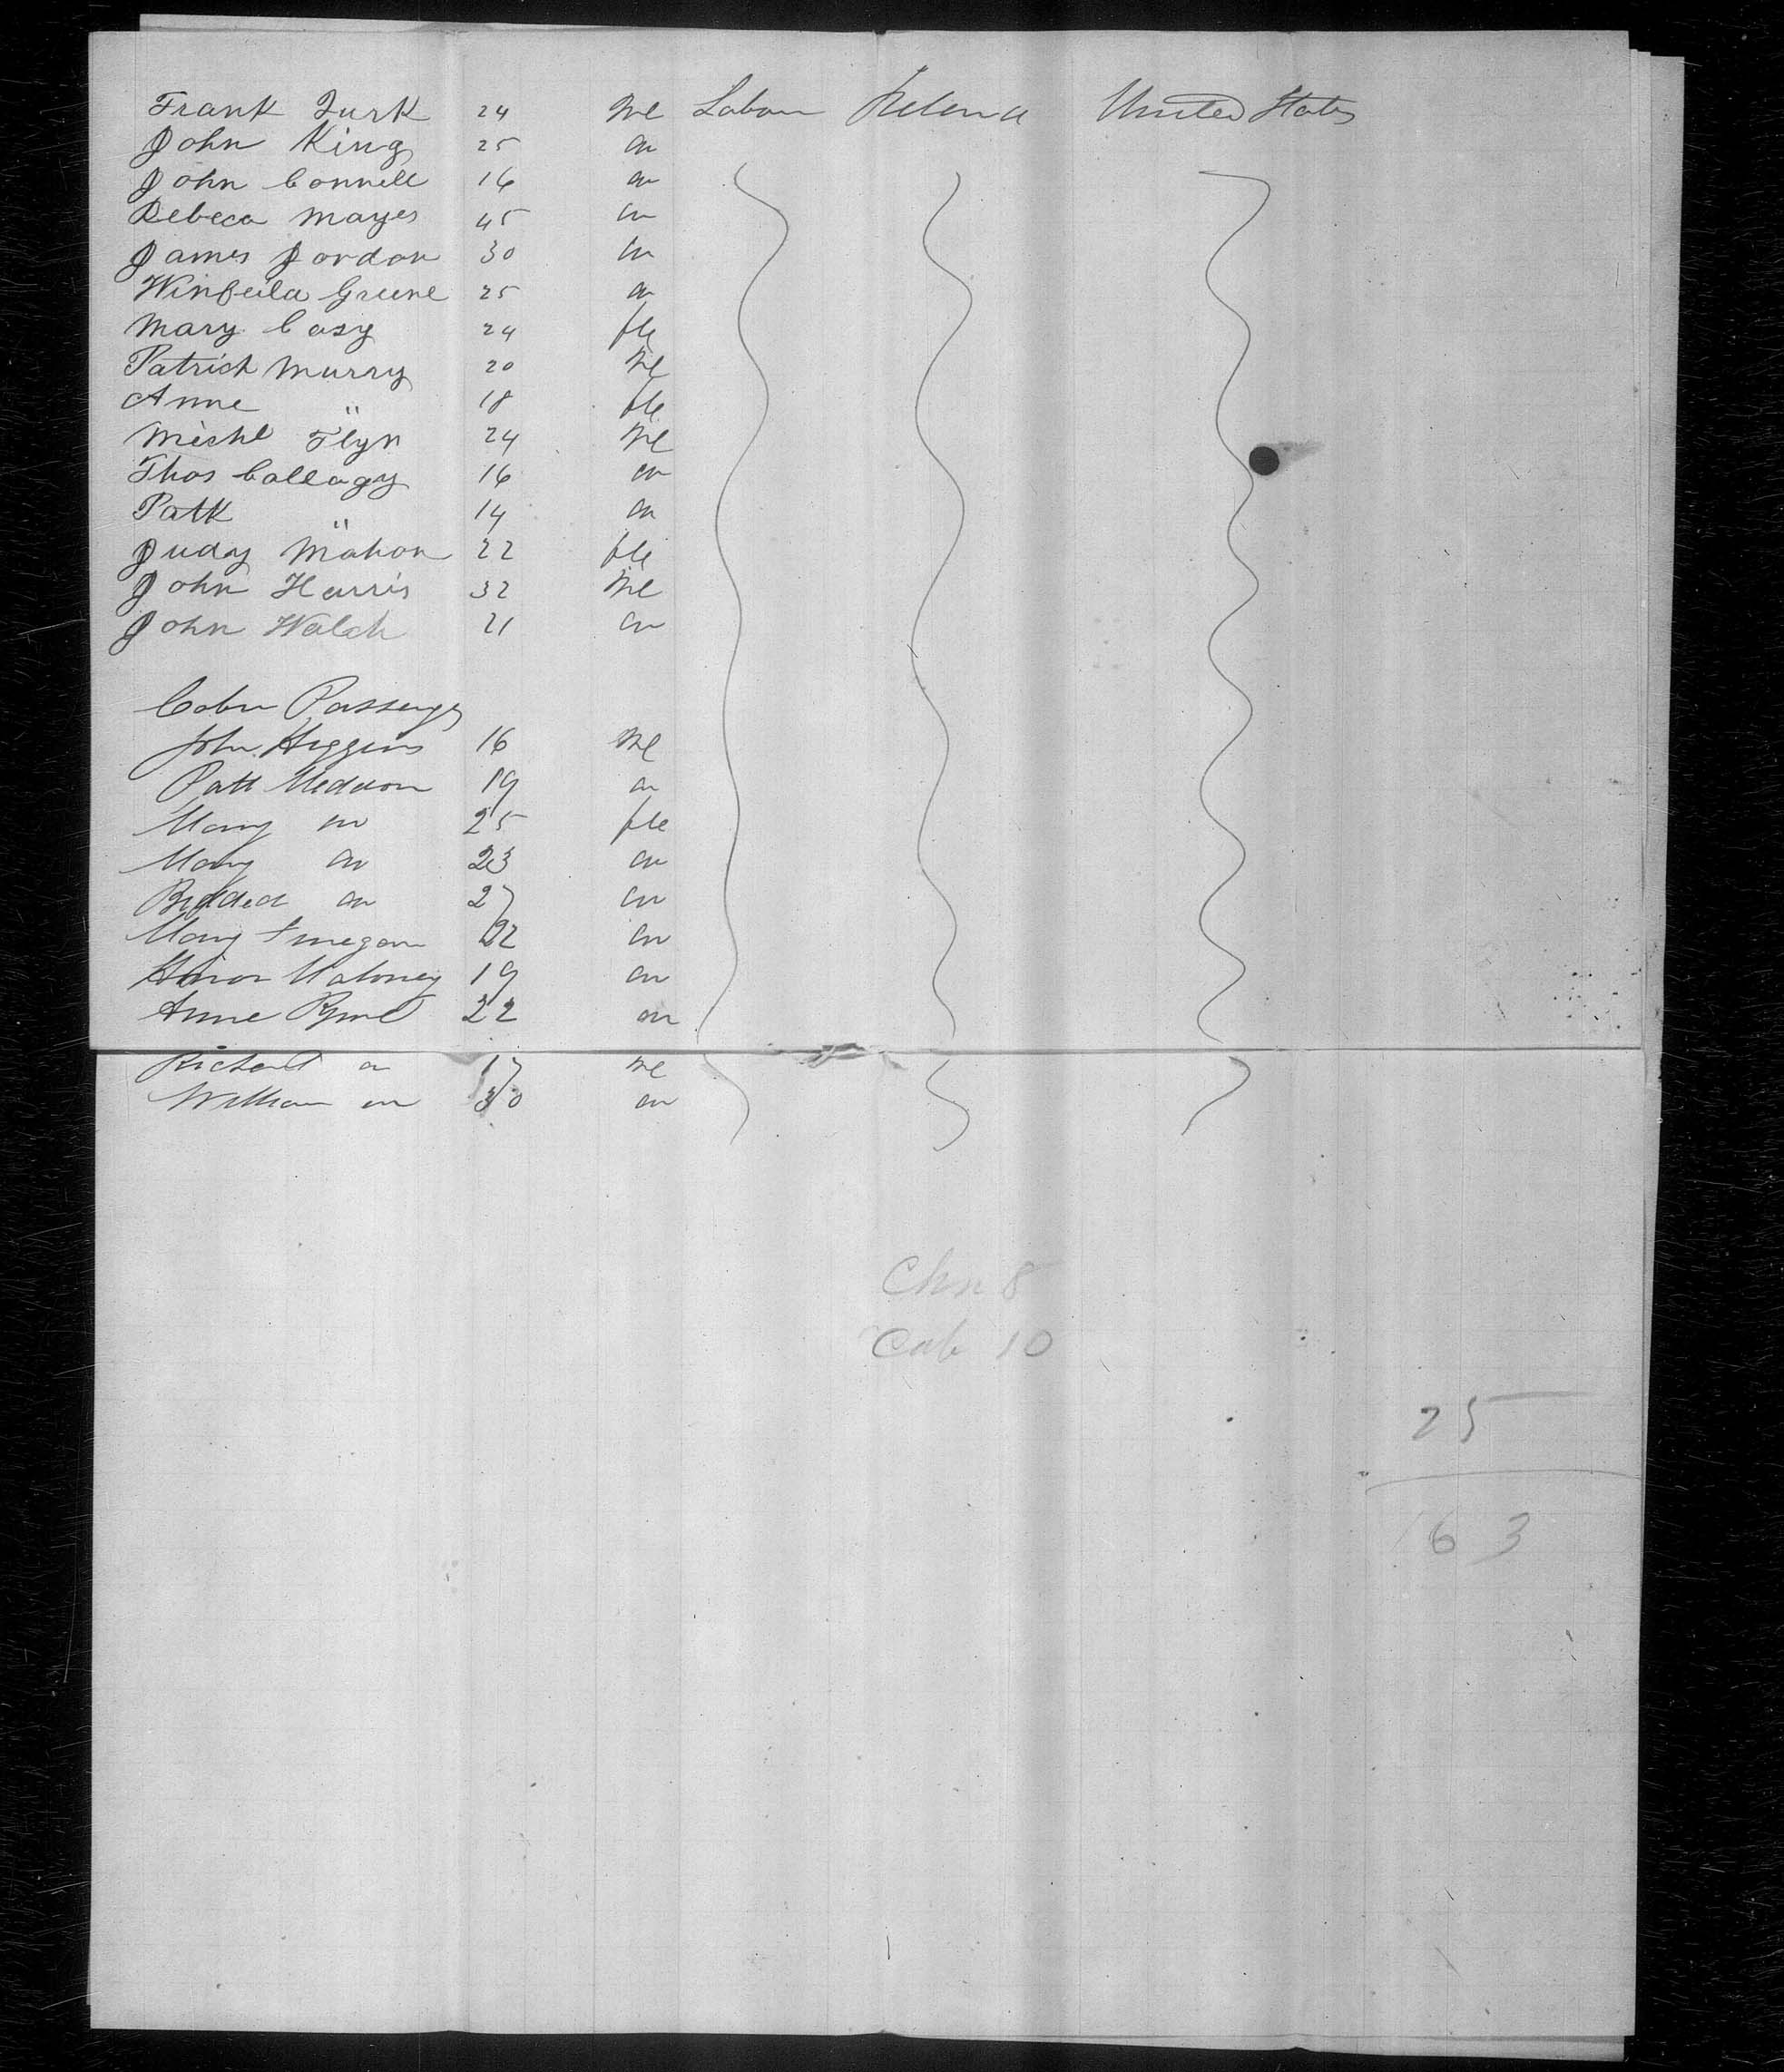 Frank Turk 24 Me Labour Ireland United States
John King 25 do
John Connell 16 do
Rebeca Mayes 45 do
James Jordon 30 do
Winfeild Greene 25 do
Mary Casy 24 fle
Patrick Murry 20 Me
Anne " 18 fle
Michl Flyn 24 Me
Thos Callagy 16 do
Patk " 14 do
Judy Mahon 22 fle
John Harris 32 Me
John Walch 21 do
Cabin Passengs
John Higgins 16 Me
Patt 19 do
Mary do 25 fle
Mary do 23 do
do 27 do
Mary Finegan 22 do
Honor Maloney 19 do
Anne 22 do
Richard do 17 Me
William do 30 do
Chn 8
Cab 10
25
163